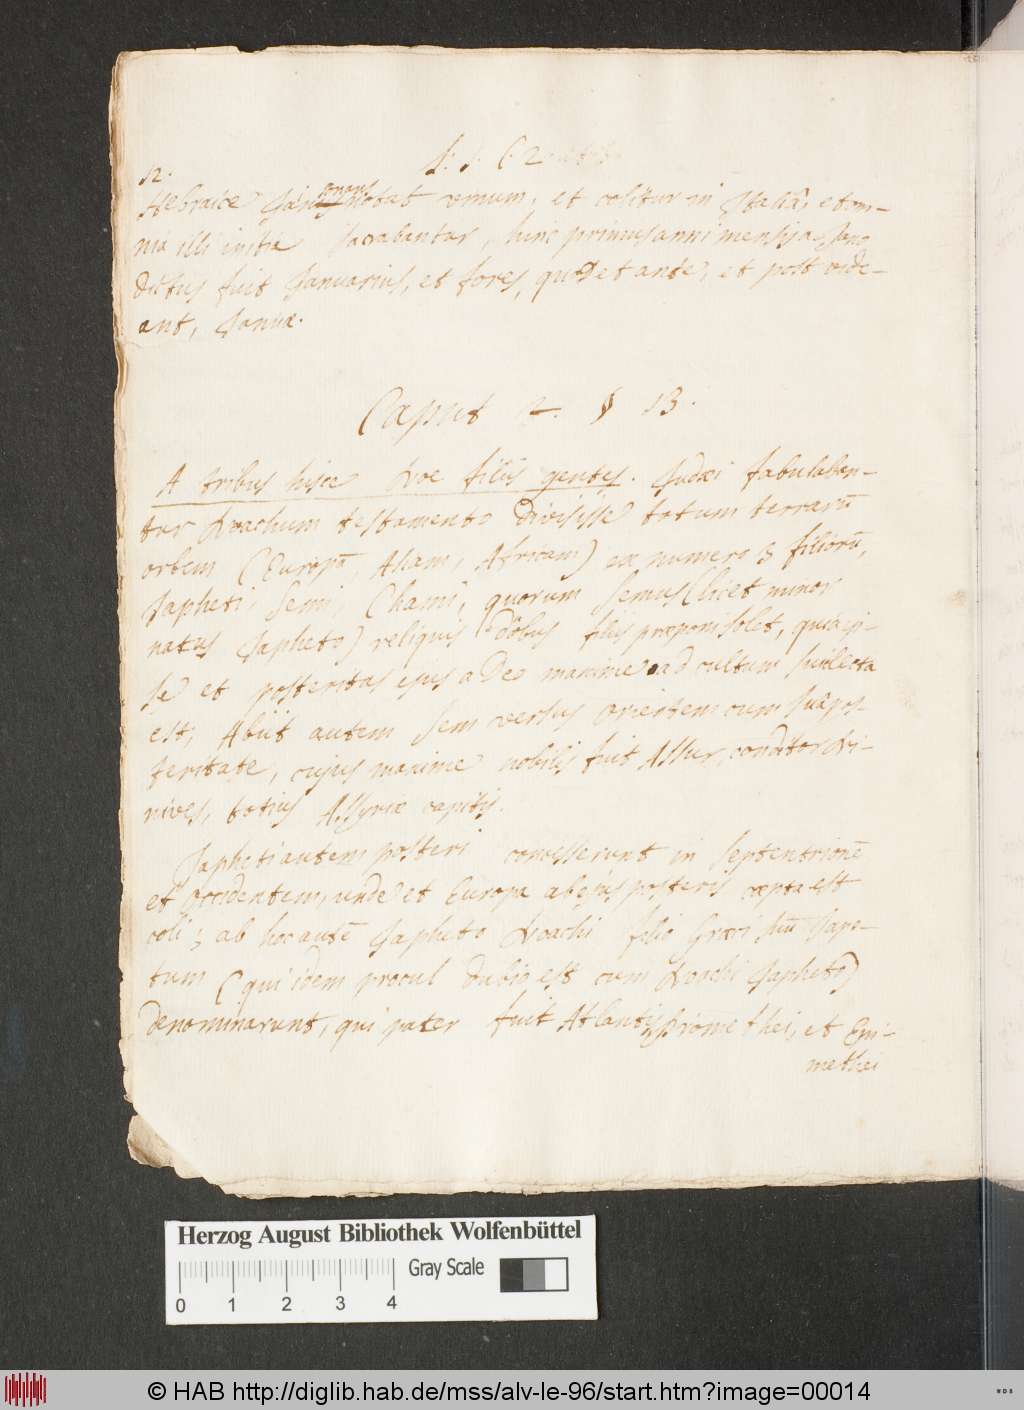 12.
L. 1. C. 2
Hebraice Janus notat vinum, et colitur in Italia, et om-
nia illi initia sacrabantur, hinc primus anni mensis a Jano
dictus fuit Januarius, et fores, quod et ante, et post vide-
ant, Januæ.
Caput 2. § 13.
A tribus hisce Noe filiis gentes. Judæi fabulaban-
tur Noachum testamento divisisse totum terrarū
orbem (Europā, Asiam, Africam) ex numero 3 filiorū,
Japheti, Semi, Chami, quorum Semus (licet minor
natus Japheto) reliquis duobus filiis præponi solet, quia ip-
se et posteritas ejus a Deo maxime ad cultum suū electa
est; Abiit autem Sem versus orientem cum sua pos-
teritate, cujus maxime nobilis fuit Assur, conditor Ni-
nives, totius Assyriæ capitis.
Japheti autem posteri concesserunt in septentrionē
et occidentem, unde et Europa ab ejus posteris cæpta est
coli; ab hoc autē Japheto Noachi filio Græci suū Jape-
tum (qui idem procul dubio est cum Noachi Japheto)
denominarunt, qui pater fuit Atlantis, Promethei, et Epi-
methei
Herzog August Bibliothek Wolfenbüttel
Gray Scale
0 1 2 3 4
© HAB http://diglib.hab.de/mss/alv-le-96/start.htm?image=00014